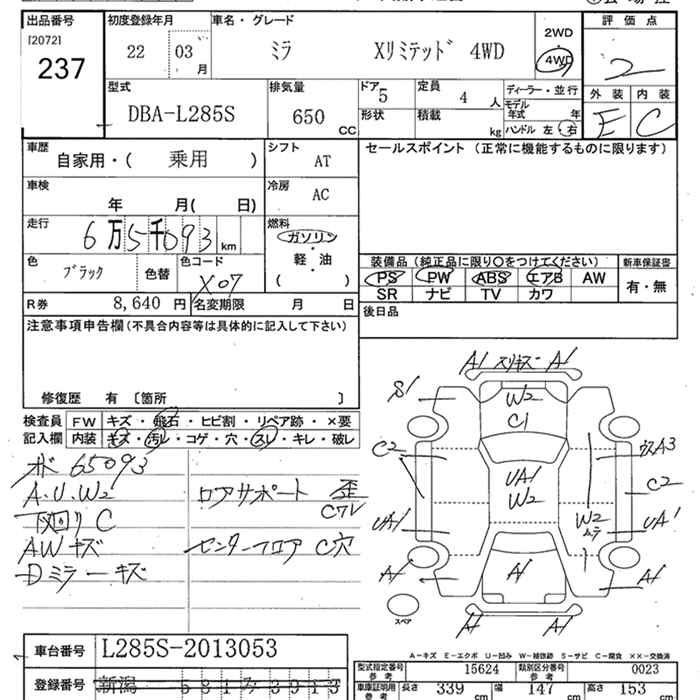 出品番号 初度登録年月 車名・グレード 評価点
[2072]
237
22 03 月 ミラ Xリミテッド 4WD 2WD 4WD 2
外装 内装
E C
型式 排気量 ドア 5 定員 4 人 ディーラー・並行
DBA-L285S 650 CC 形状 積載 kg モデル年式 年
ハンドル 左 右
車歴 シフト セールスポイント (正常に機能するものに限ります)
自家用・( 乗用 ) AT
車検 冷房
年 月( 日) AC
走行 燃料
6万5千093 km ガソリン
・
軽・油
・
( )
色 色コード 装備品 (純正品に限り○をつけてください) 新車保証書
ブラック 色替 X07 PS PW ABS エアB AW 有・無
SR ナビ TV カワ
R券 8,640 円 名変期限 月 日 後日品
注意事項申告欄 (不具合内容等は具体的に記入して下さい)
修復歴 有 〔箇所 〕
検査員 FW キズ・飛石・ヒビ割・リペア跡・×要
記入欄 内装 キズ・汚レ・コゲ・穴・スレ・キレ・破レ
ボ 65093
A.U.W2 ロアサポート 歪 Cワレ
下回り C
AWキズ センターフロア C穴
Dミラーキズ
A1 スリキズ A1
S1 W2
C1
C2 ワスA3
C2
UA1
W2 W2
ムラ
UA1 UA1
A1 A1 A1
スペア
A1 A1
A-キズ E-エクボ U-凹み W-補修跡 S-サビ C-腐食 ××-交換済
車台番号 L285S-2013053
型式指定番号 参考 15624 類別区分番号 参考 0023
登録番号 新潟 581 ヌ 3913
車庫証明用 参考 長さ 339 cm 幅 147 cm 高さ 153 cm